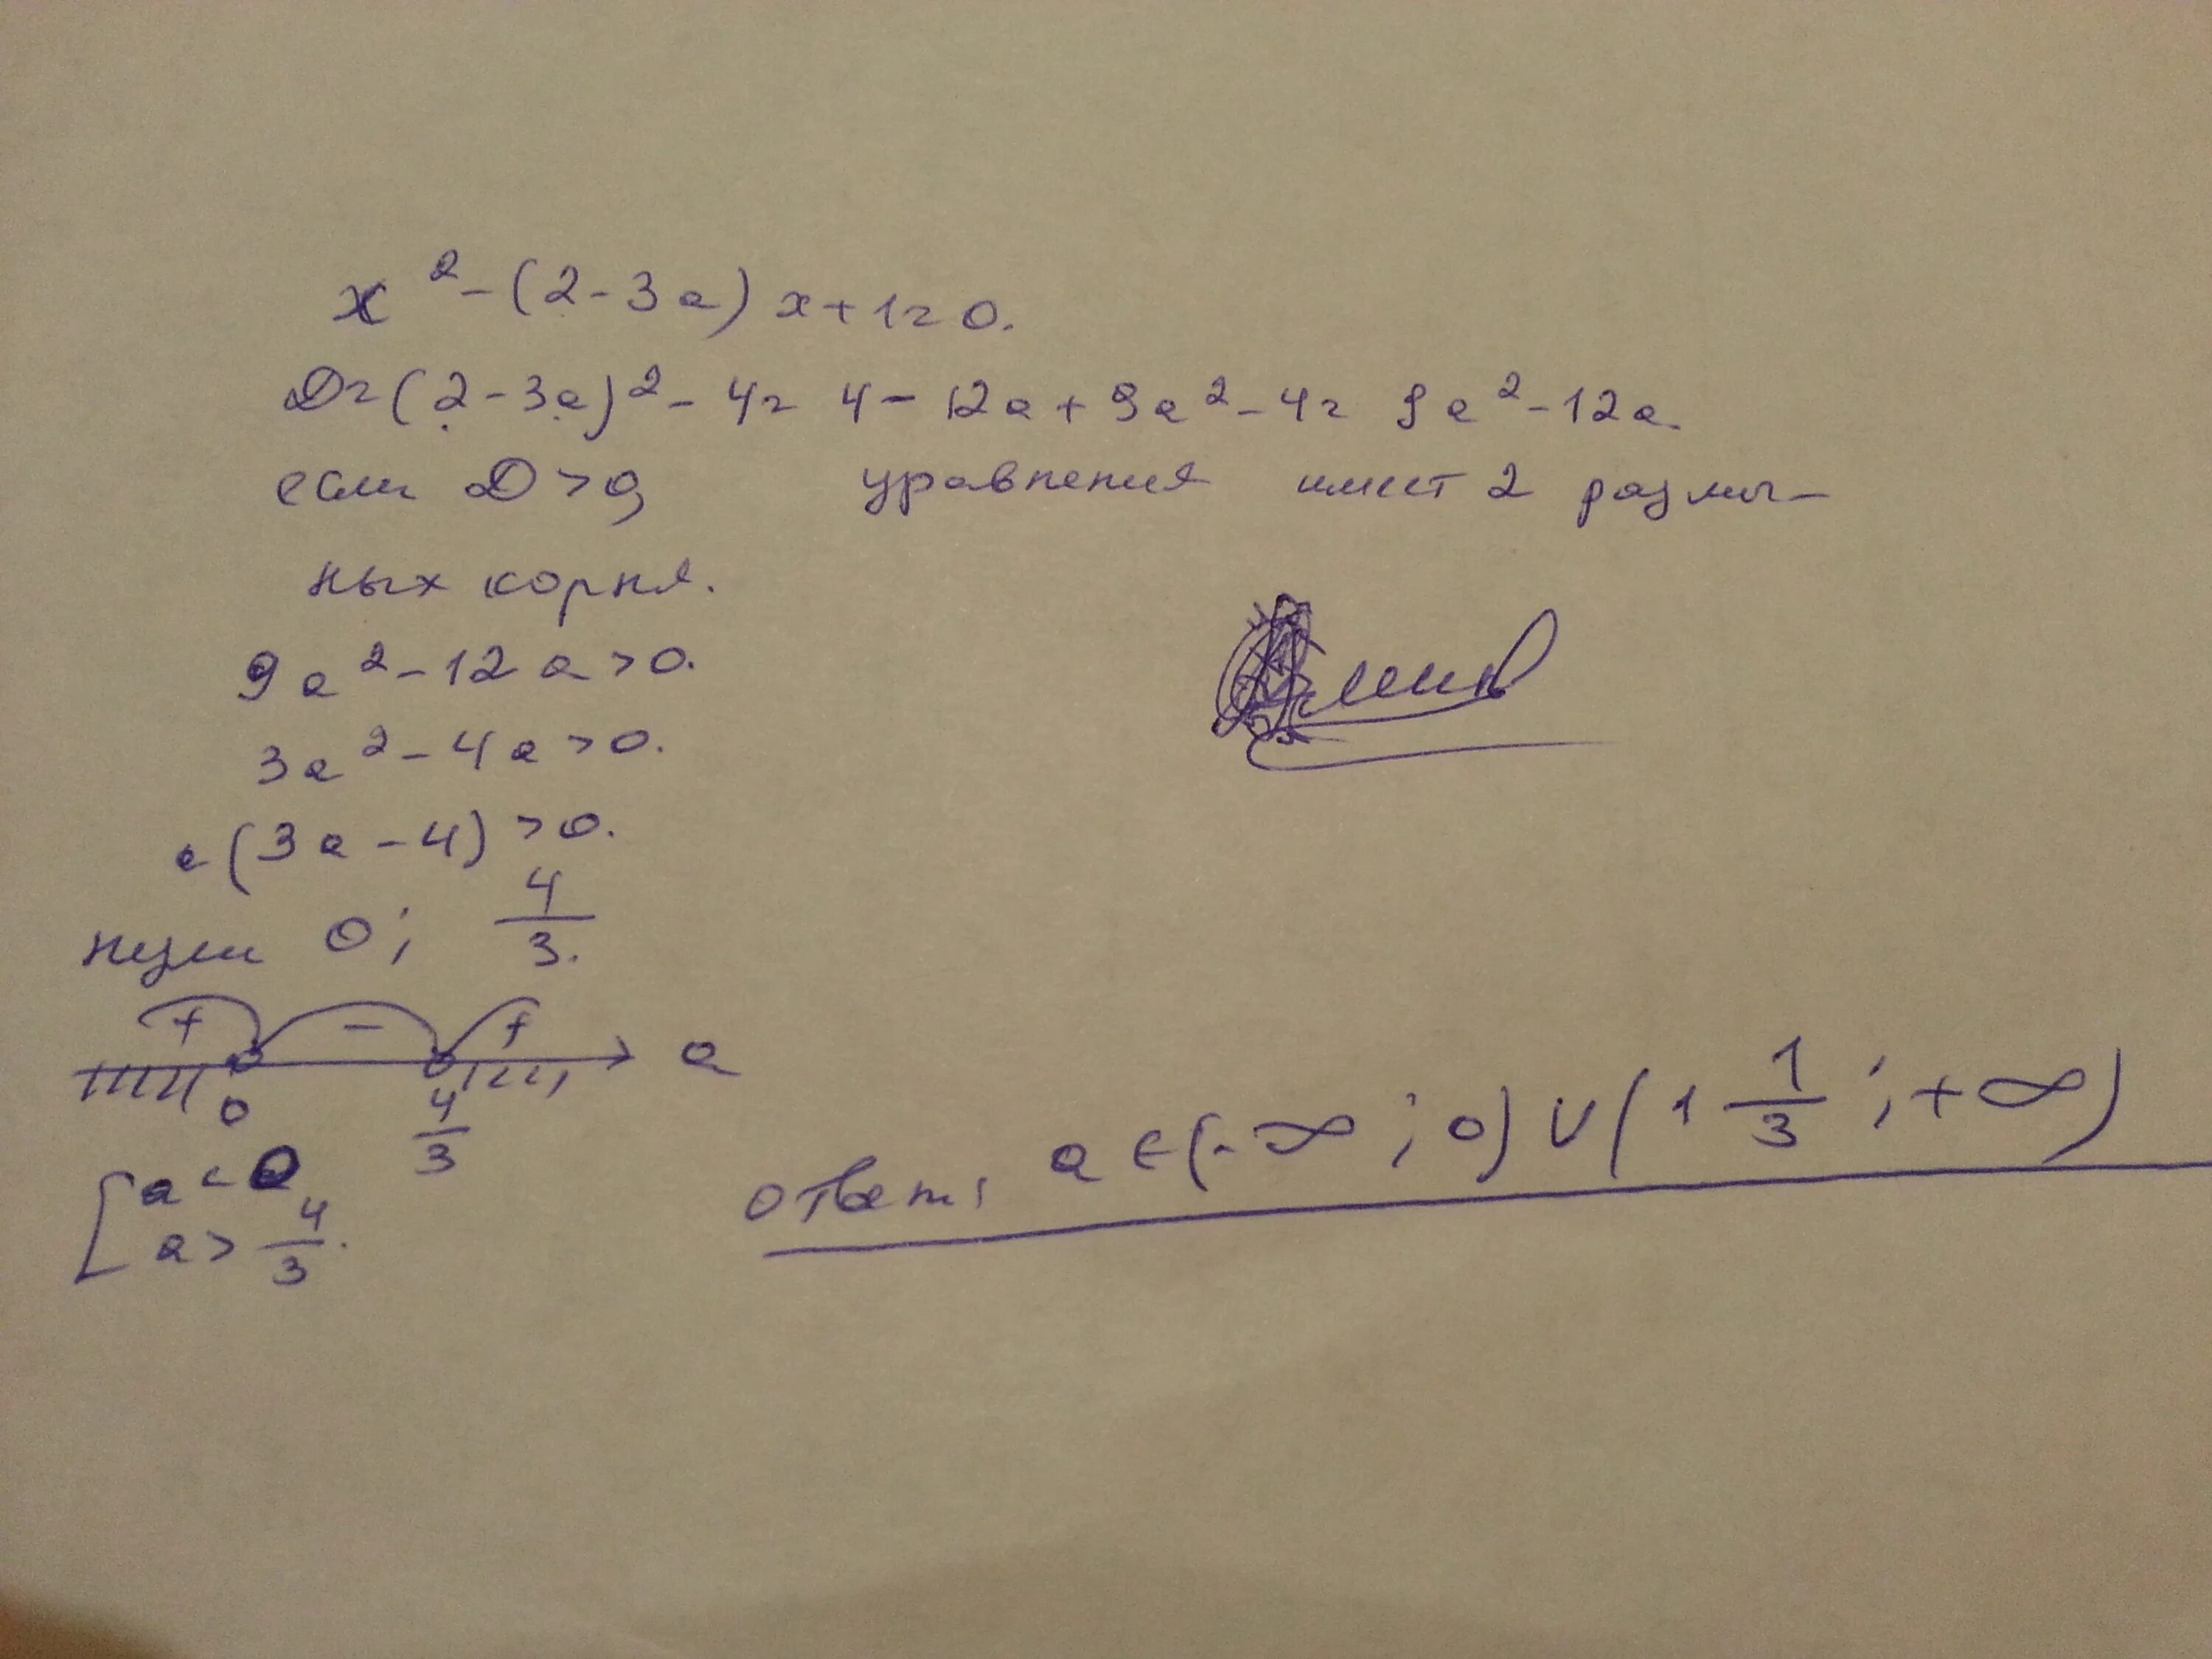 x² - (2 - 3a) x + 1 = 0.
D = (2 - 3a)² - 4 = 4 - 12a + 9a² - 4 = 9a² - 12a.
если D > 0, уравнения имеет 2 различ-
ных корня.
9a² - 12a > 0.
3a² - 4a > 0.
a(3a - 4) > 0.
нули 0; 4/3.
+ - +
a
0 4/3
[ a < 0
a > 4/3.
ответ: a ∈ (-∞; 0) ∪ (1 1/3; +∞)